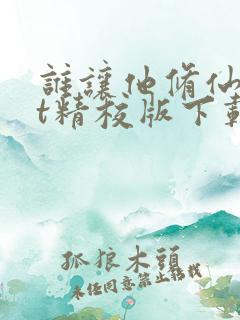 誰讓他修仙
t精校版下載
孤狼木頭
未经同意禁止转载